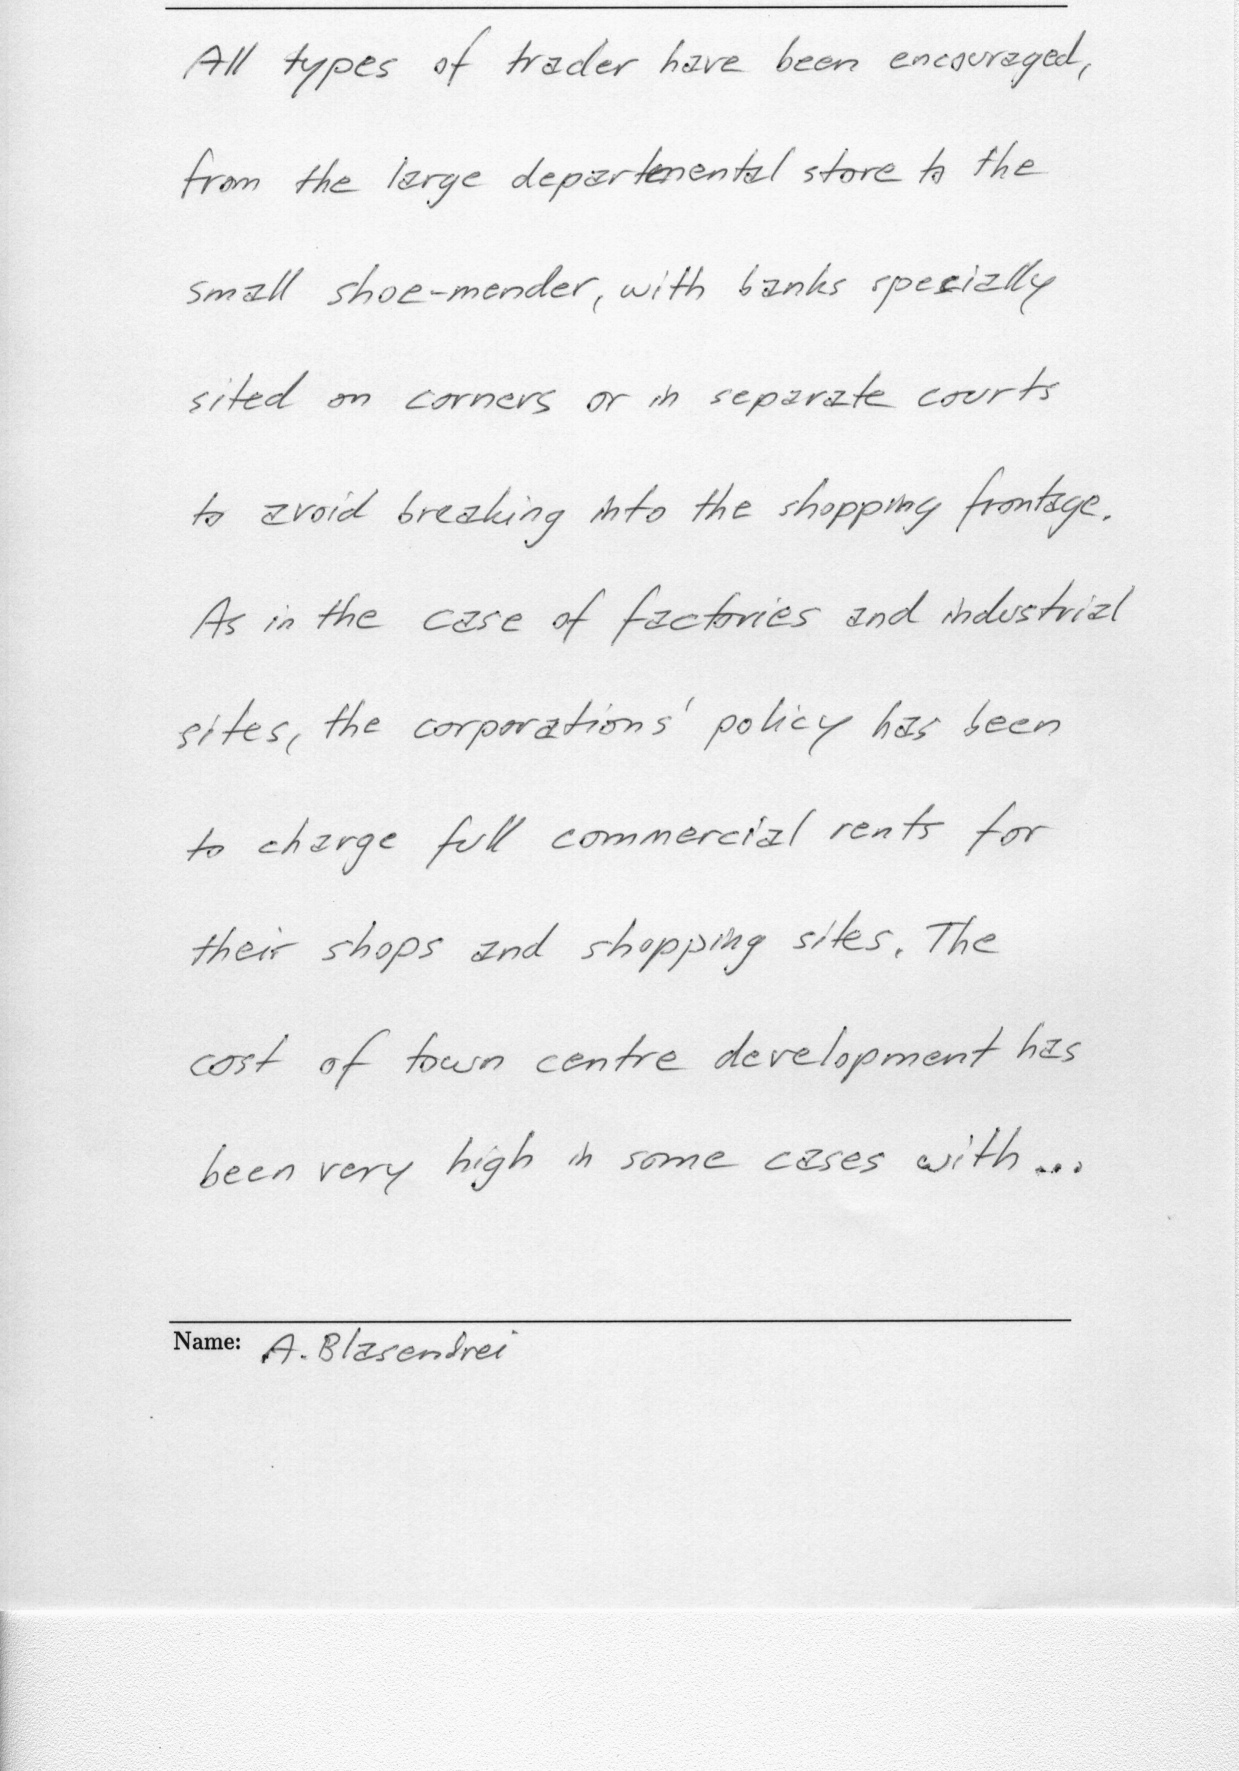 All types of trader have been encouraged,
from the large departmental store to the
small shoe-mender, with banks specially
sited on corners or in separate courts
to avoid breaking into the shopping frontage.
As in the case of factories and industrial
sites, the corporations' policy has been
to charge full commercial rents for
their shops and shopping sites. The
cost of town centre development has
been very high in some cases with...
Name: A. Blasendrei